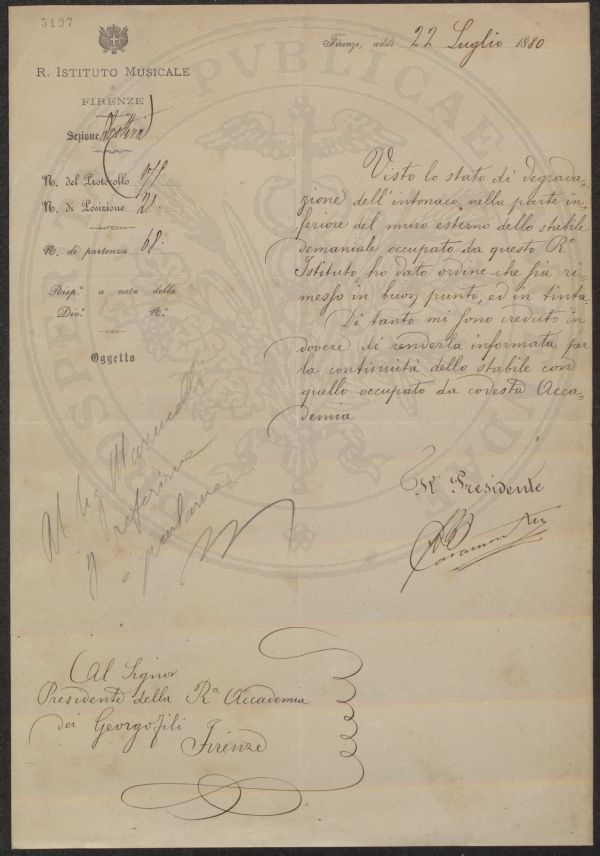 5197
R. ISTITUTO MUSICALE
di
FIRENZE
Sezione
N. del Protocollo
N. di Posizione 21.
N. di partenza 68.
Risp.ª a nota della
Div.e N.º
Oggetto
Firenze, addì 22 Luglio 1880
Visto lo stato di degrada-
zione dell'intonaco, nella parte in-
feriore del muro esterno dello stabile
demaniale occupato da questo R.º
Istituto, ho dato ordine che sia ri-
messo in buon punto, ed in tinta.
Di tanto mi sono creduto in
dovere di renderla informata per
la continuità dello stabile con
quello occupato da codesta Acca-
demia
Il Presidente
Al Sig.
Al Signor
Presidente della R.ª Accademia
dei Georgofili
Firenze
PVBLICAE
PROSPERITATI